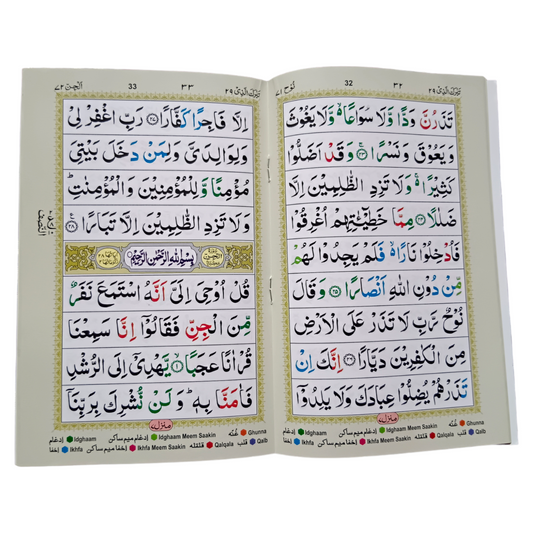 تبٰرك الذی ٢٩
٣٢
32
نوح ٧١
تَذَرُنَّ وَدًّا وَّلَا سُوَاعًا ۙ وَّلَا یَغُوْثَ
وَ یَعُوْقَ وَ نَسْرًا ﴿٢٣﴾ وَقَدْ اَضَلُّوْا
كَثِیْرًا ۚ وَلَا تَزِدِ الظّٰلِمِیْنَ اِلَّا
ضَلٰلًا ﴿٢٤﴾ مِمَّا خَطِیْٓـٰٔتِهِمْ اُغْرِقُوْا
فَاُدْخِلُوْا نَارًا ۙ فَلَمْ یَجِدُوْا لَهُمْ
مِّنْ دُوْنِ اللّٰهِ اَنْصَارًا ﴿٢٥﴾ وَقَالَ
نُوْحٌ رَّبِّ لَا تَذَرْ عَلَى الْاَرْضِ
مِنَ الْكٰفِرِیْنَ دَیَّارًا ﴿٢٦﴾ اِنَّكَ اِنْ
تَذَرْهُمْ یُضِلُّوْا عِبَادَكَ وَلَا یَلِدُوْۤا
منزل ٧
Idghaam ادغام Idghaam Meem Saakin ادغام میم ساکن Ghunna غُنّه
Ikhfa اخفا Ikhfa Meem Saakin اخفا میم ساکن Qalqala قلقله Qalb قلب
٣٣
33
الجن ٧٢
اِلَّا فَاجِرًا كَفَّارًا ﴿٢٧﴾ رَبِّ اغْفِرْ لِیْ
وَلِوَالِدَیَّ وَلِمَنْ دَخَلَ بَیْتِیَ
مُؤْمِنًا وَّلِلْمُؤْمِنِیْنَ وَالْمُؤْمِنٰتِ ؕ
وَلَا تَزِدِ الظّٰلِمِیْنَ اِلَّا تَبَارًا ﴿٢٨﴾
بِسْمِ اللّٰهِ الرَّحْمٰنِ الرَّحِیْمِ
قُلْ اُوْحِیَ اِلَیَّ اَنَّهُ اسْتَمَعَ نَفَرٌ
مِّنَ الْجِنِّ فَقَالُوْۤا اِنَّا سَمِعْنَا
قُرْاٰنًا عَجَبًا ﴿١﴾ یَّهْدِیْۤ اِلَى الرُّشْدِ
فَاٰمَنَّا بِهٖ ؕ وَلَنْ نُّشْرِكَ بِرَبِّنَاۤ
منزل ٧
Idghaam ادغام Idghaam Meem Saakin ادغام میم ساکن Ghunna غُنّه
Ikhfa اخفا Ikhfa Meem Saakin اخفا میم ساکن Qalqala قلقله Qalb قلب